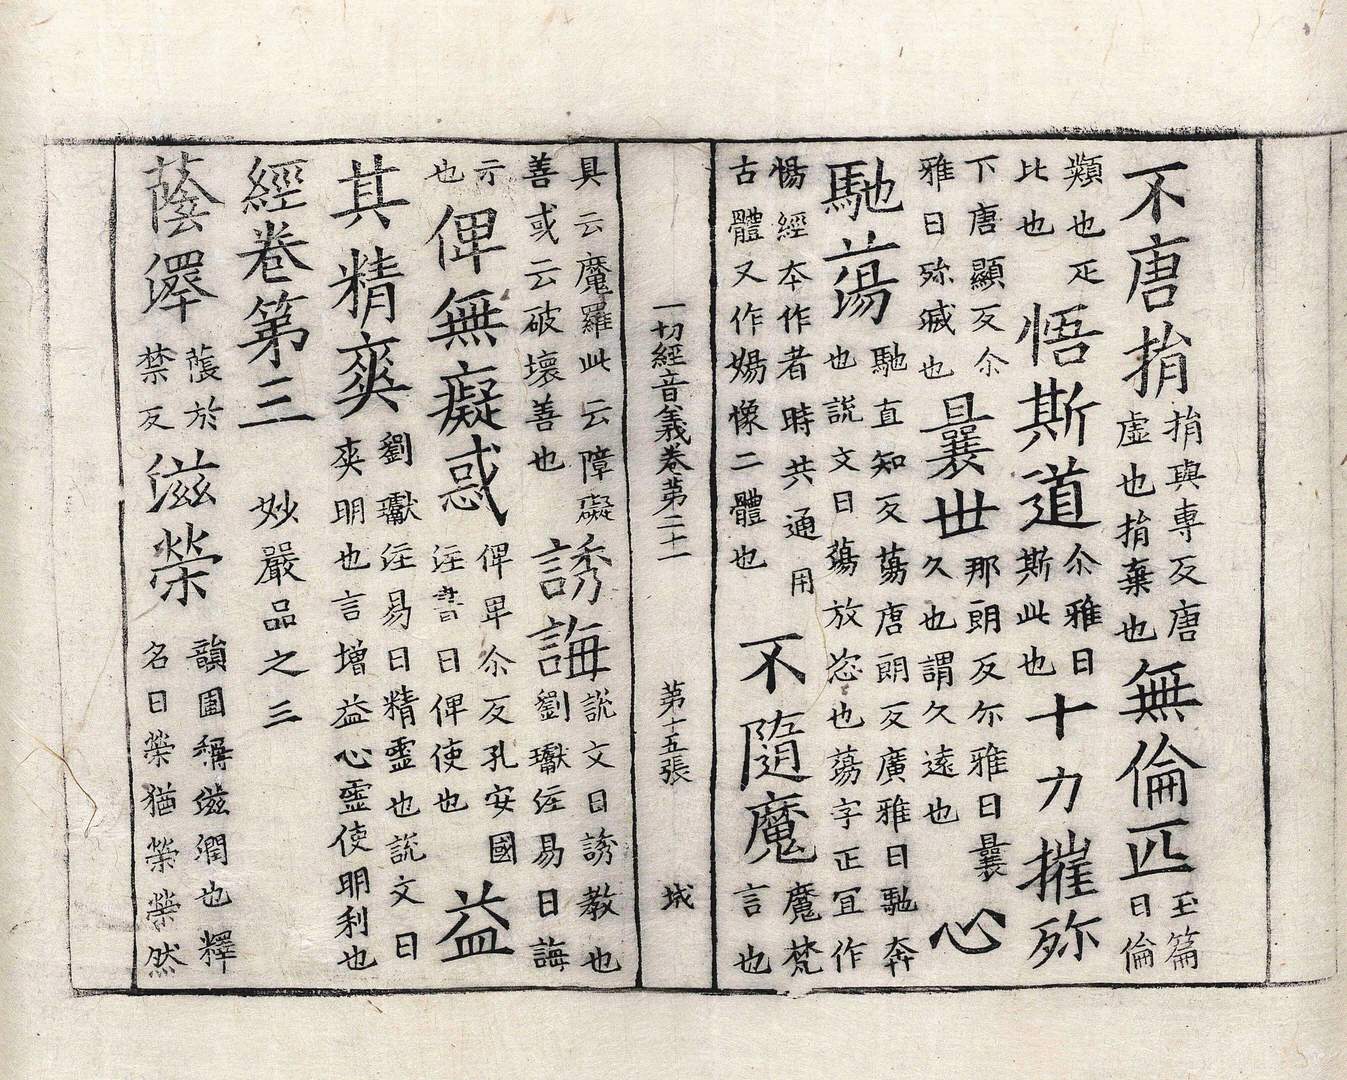 不唐捐捐與專反唐虛也捐棄也無倫匹玉篇曰倫
類也疋比也悟斯道尒雅曰斯此也十力摧殄
下唐顯反尒雅曰殄滅也曩世那朗反尒雅曰曩久也謂久遠也心
馳蕩馳直知反蕩唐朗反廣雅曰馳奔也説文曰蕩放恣也蕩字正宜作
惕經本作者時共通用古體又作婸像二體也不隨魔魔梵言也
一切經音義卷第二十一 第十五張 城
具云魔羅此云障礙善或云破壞善也誘誨説文曰誘教也劉瓛注易曰誨
示也俾無癡惑俾卑尒反孔安國注書曰俾使也益
其精爽劉瓛注易曰精靈也説文曰爽明也言增益心靈使明利也
經卷第三 妙嚴品之三
蔭澤蔭於禁反滋榮韻圃稱滋潤也釋名曰榮猶熒熒然